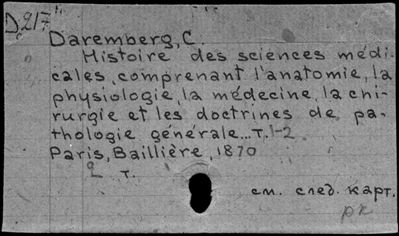 D217
Daremberg, C.
Histoire des sciences médi-
cales, comprenant l'anatomie, la
physiologie, la médecine, la chi-
rurgie et les doctrines de pa-
thologie générale... т. 1-2
Paris, Baillière, 1870
2 т.
см. след. карт.
рк